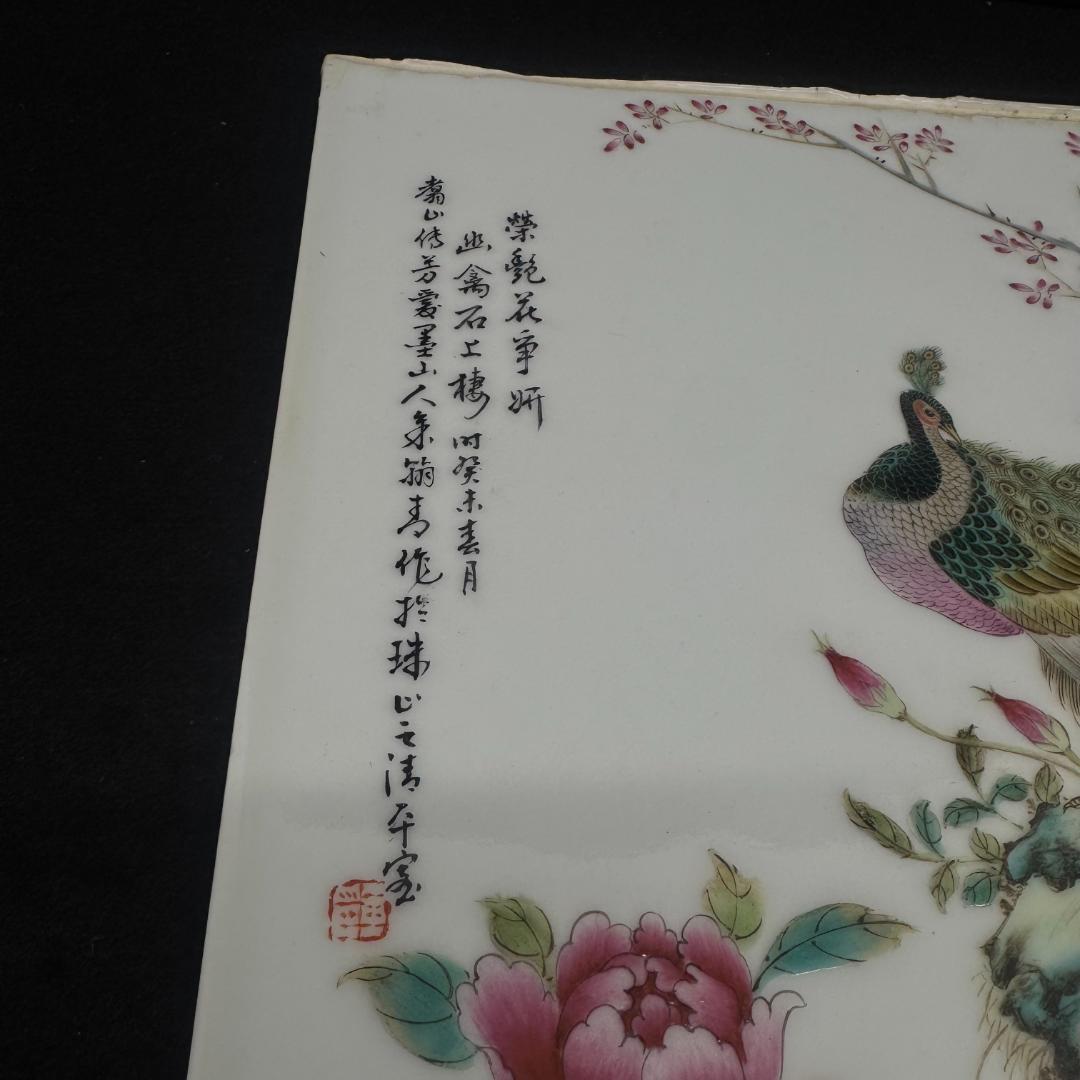 榮艷花爭妍
幽禽石上棲 時癸未春月
山傳芳愛墨山人余翰青作於珠山之清平室